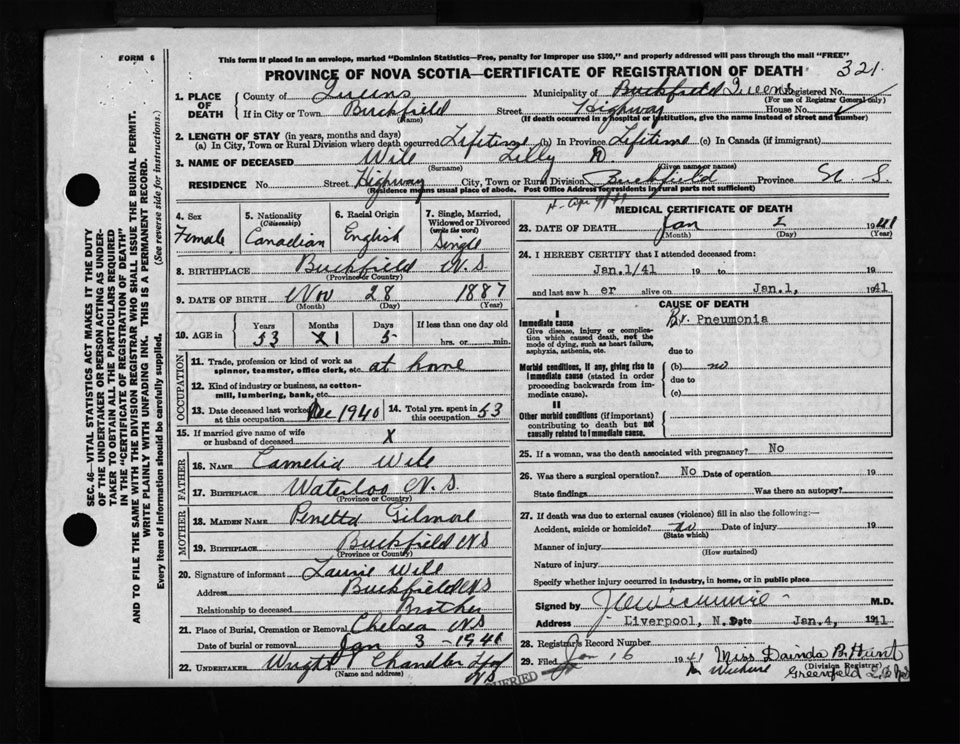 FORM 6
This form if placed in an envelope, marked "Dominion Statistics—Free, penalty for improper use $300," and properly addressed will pass through the mail "FREE"
PROVINCE OF NOVA SCOTIA—CERTIFICATE OF REGISTRATION OF DEATH 321.
SEC. 46—VITAL STATISTICS ACT MAKES IT THE DUTY
OF THE UNDERTAKER OR PERSON ACTING AS UNDER-
TAKER TO OBTAIN ALL THE PARTICULARS REQUIRED
IN THE "CERTIFICATE OF REGISTRATION OF DEATH"
AND TO FILE THE SAME WITH THE DIVISION REGISTRAR WHO SHALL ISSUE THE BURIAL PERMIT.
WRITE PLAINLY WITH UNFADING INK. THIS IS A PERMANENT RECORD.
Every item of information should be carefully supplied. (See reverse side for instructions.)
1. PLACE OF DEATH
County of Queens Municipality of Buckfield Queens Registered No.
(For use of Registrar General only)
If in City or Town Buckfield Street Highway House No.
(Name) (If death occurred in a hospital or institution, give the name instead of street and number)
2. LENGTH OF STAY (in years, months and days)
(a) In City, Town or Rural Division where death occurred Lifetime (b) In Province Lifetime (c) In Canada (if immigrant)
3. NAME OF DECEASED Wile Lilly D
(Surname) (Given name or names)
RESIDENCE No. Street Highway City, Town or Rural Division Buckfield Province N. S.
(Residence means usual place of abode. Post Office Address for residents in rural parts not sufficient)
4. Sex
Female
5. Nationality
(Citizenship)
Canadian
6. Racial Origin
English
7. Single, Married, Widowed or Divorced
(write the word)
Single
8. BIRTHPLACE Buckfield N S
(Province or Country)
9. DATE OF BIRTH Nov 28 1887
(Month) (Day) (Year)
10. AGE in
Years Months Days If less than one day old
53 1 5 hrs. or min.
OCCUPATION
11. Trade, profession or kind of work as spinner, teamster, office clerk, etc. at home
12. Kind of industry or business, as cotton-mill, lumbering, bank, etc.
13. Date deceased last worked at this occupation Dec 1940
14. Total yrs. spent in this occupation 53
15. If married give name of wife or husband of deceased X
FATHER
16. NAME Camelia Wile
17. BIRTHPLACE Waterloo N. S.
(Province or Country)
MOTHER
18. MAIDEN NAME Penetta Gilmore
19. BIRTHPLACE Buckfield NS
(Province or Country)
20. Signature of informant Laurie Wile
Address Buckfield NS
Relationship to deceased Brother
21. Place of Burial, Cremation or Removal Chelsea NS
Date of burial or removal Jan 3 - 1941
22. UNDERTAKER Wright Chandler
NS
(Name and address)
MEDICAL CERTIFICATE OF DEATH
23. DATE OF DEATH Jan 2 1941
(Month) (Day) (Year)
24. I HEREBY CERTIFY that I attended deceased from:
Jan.1/41 19 to 19
and last saw h er alive on Jan.1, 1941
CAUSE OF DEATH
I
Immediate cause
Give disease, injury or complication which caused death, not the mode of dying, such as heart failure, asphyxia, asthenia, etc.
Br. Pneumonia
due to
Morbid conditions, if any, giving rise to immediate cause (stated in order proceeding backwards from immediate cause).
(b) no
due to
(c)
II
Other morbid conditions (if important) contributing to death but not causally related to immediate cause.
25. If a woman, was the death associated with pregnancy? No
26. Was there a surgical operation? No Date of operation 19
State findings Was there an autopsy?
27. If death was due to external causes (violence) fill in also the following:—
Accident, suicide or homicide? no Date of injury 19
(State which)
Manner of injury
(How sustained)
Nature of injury
Specify whether injury occurred in industry, in home, or in public place
Signed by M.D.
Address Liverpool, N.S. Date Jan.4, 1941
28. Registrar's Record Number
29. Filed Jan 16 1941 Miss Dainda B. Hunt
(Division Registrar)
Greenfield